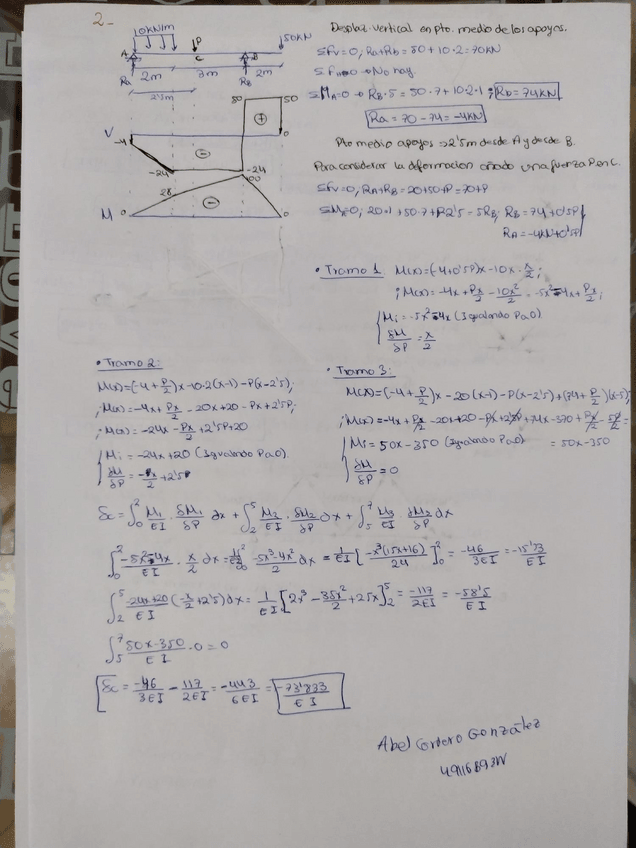 2-
10KN/m
P
50KN
A
C
B
Ra 2m 3m RB 2m
2'5m
50 50
V -4 0
-24 -24
28 100
M 0 0
Desplaz. vertical en pto. medio de los apoyos.
ΣFv=0; Ra+Rb = 50+10·2 = 70KN
ΣFH=0 → No hay.
ΣMA=0 → RB·5 = 50·7+10·2·1; Rb = 74KN
Ra = 70-74 = -4KN
Pto medio apoyos → 2'5m desde A y desde B.
Para considerar la deformacion añado una fuerza P en C.
ΣFv=0; RA+RB = 20+50+P = 70+P
ΣMA=0; 20·1+50·7+P2'5 = 5RB; RB = 74+0'5P
RA = -4KN+0'5P
• Tramo 1. M(x)=(-4+0'5P)x-10x·x/2;
; M(x)=-4x+Px/2-10x²/2=-5x²-4x+Px/2;
Mi=-5x²-4x (Igualando P a 0)
δM/δP=x/2
• Tramo 2:
M(x)=(-4+P/2)x-10·2(x-1)-P(x-2'5);
; M(x)=-4x+Px/2-20x+20-Px+2'5P;
; M(x)=-24x-Px/2+2'5P+20
Mi=-24x+20 (Igualando P a 0)
δM/δP=-x/2+2'5
• Tramo 3:
M(x)=(-4+P/2)x-20(x-1)-P(x-2'5)+(74+P/2)(x-5);
; M(x)=-4x+Px/2-20x+20-Px+2'5P+74x-370+Px/2-5P/2=
= 50x-350
Mi=50x-350 (Igualando P a 0)
δM/δP=0
δc=∫₀² M1/EI · δM1/δP dx + ∫₂⁵ M2/EI · δM2/δP dx + ∫₅⁷ M3/EI · δM3/δP dx
∫₀² -5x²-4x/EI · x/2 dx = 1/EI ∫₀² -5x³-4x²/2 dx = 1/EI [-x³(15x+16)/24]₀² = -46/3EI = -15'33/EI
∫₂⁵ -24x+20/EI (-x/2+2'5)dx = 1/EI [2x³-35x²/2+25x]... = -117/2EI = -58'5/EI
∫₅⁷ 50x-350/EI ·0=0
δc=-46/3EI-117/2EI=-443/6EI=-73'833/EI
Abel Cordero González